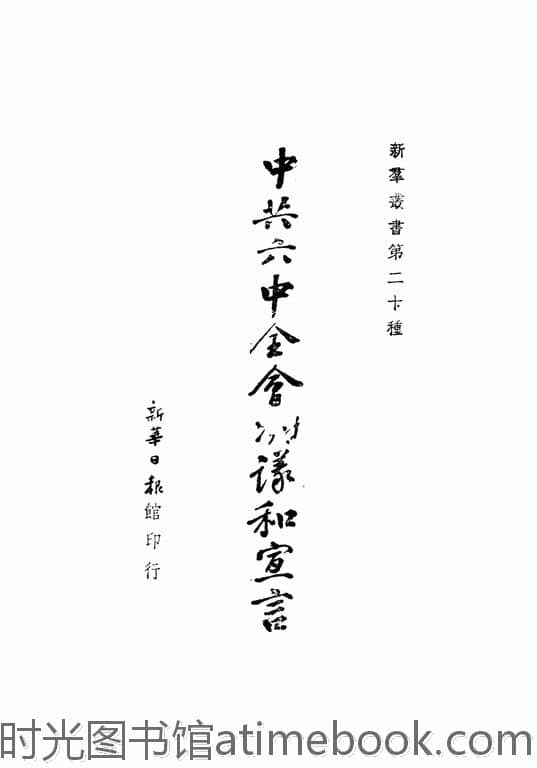 新羣叢書第二十種
中共六中全會决議和宣言
新華日報館印行
时光图书馆atimebook.com